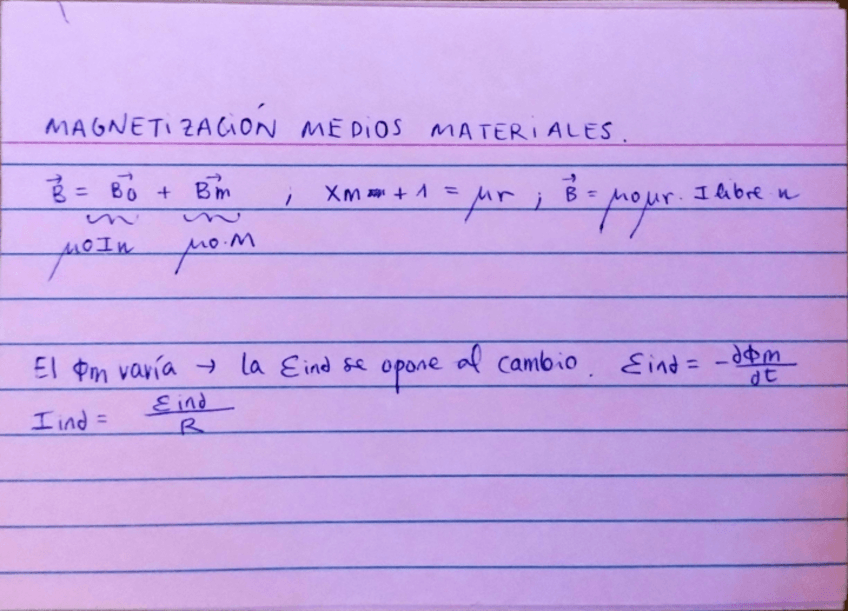 MAGNETIZACIÓN MEDIOS MATERIALES.
B⃗ = B⃗o + B⃗m ; Xm + 1 = μr ; B⃗ = μoμr. I libre n
μoIn μo.M
El Φm varía → la Eind se opone al cambio. Eind = -∂Φm/∂t
Iind = Eind/R